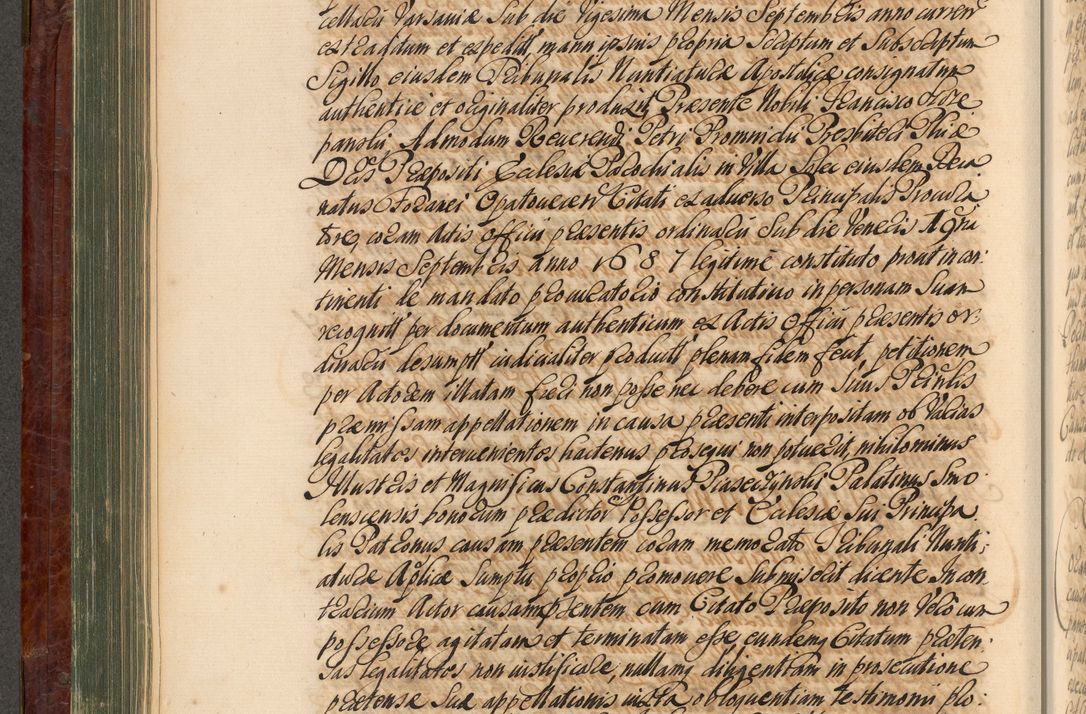 cellaciu Varsaviæ Sub die Vigesima Mensis Septembris anno curren
extraddum et expeditt manu ipsius propria Scriptum et Subscriptum
Sigillo eiusdem Tribunalis Nuntiaturæ Apostolicæ consignatum
authenticè et originaliter produxit Præsente Nobili Francisco
panski Admodum Reverendi Petri Presbiteri
Præpositi Ecclesiæ Parochialis in Villa eiusdem
natus Citati ex adverso Principalis Procura
tore, coram Actis Officii præsentis ordinarii Sub die Veneris 19na
Mensis Septembris anno 1687 legitimè constituto prout in con:
tinenti de mandato procuratorio constitutivo in personam Suam
recognitt per documentum authenticum ex Actis Officii præsentis or:
dinarii desumptt iudicialiter producti plenam fidem fecit, petitionem
per Actorem illatam fieri non posse nec debere cum Suus Princlis
præmissam appellationem in causa præsenti interpositam ob Varias
legalitates intervenientes hactenus prosequi non potuerit, nihilominus
Illustris et Magnificus Constantinus Piaseczinski Palatinus Smo
lenscensis bonorum prædictor Possessor et Ecclesiæ Sui Principa
lis Patronus causam præsentem coram memorato Tribunali Nunti:
aturæ Aplicæ Sumptu proprio promovere Submiserit dicente In con
trarium Actor causam pntem cum Citato Præposito non Vero cum
possessore agitatam et terminatam esse, eundemq Citatum præten:
sas legalitates non iustificare, nullamq diligentiam in prosecutione
prætensæ Suæ appellationis iuxta obloquentiam testimonii pro: